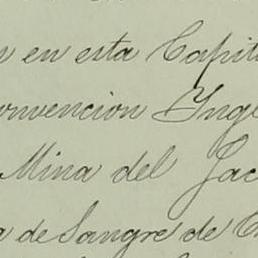 en esta Capit
onvencion Yng
Mina del Jac
de Sangre de C